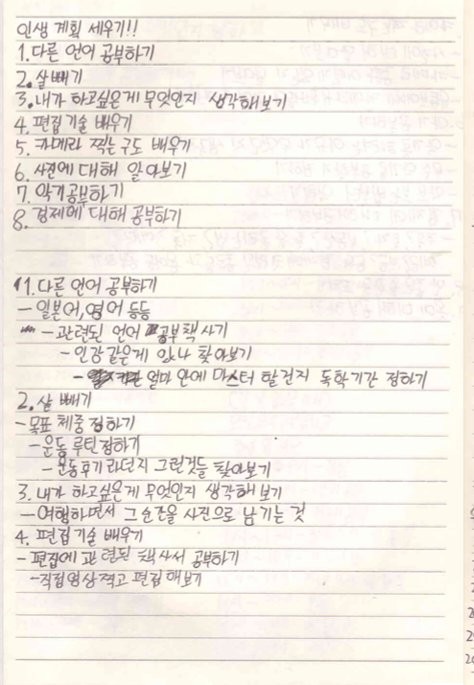 인생 계획 세우기!!
1. 다른 언어 공부하기
2. 살빼기
3. 내가 하고싶은게 무엇인지 생각해보기
4. 편집 기술 배우기
5. 카메라 찍는 구도 배우기
6. 사진에 대해 알아보기
7. 악기공부하기
8. 경제에 대해 공부하기
1. 다른 언어 공부하기
- 일본어, 영어 등등
- 관련된 언어 공부책 사기
- 인강같은게 있나 찾아보기
- 얼마 안에 마스터 할건지 독학기간 정하기
2. 살 빼기
- 목표 체중 정하기
- 운동 루틴정하기
- 운동후기라던지 그런것들 찾아보기
3. 내가 하고싶은게 무엇인지 생각해보기
- 여행하면서 그 순간을 사진으로 남기는 것
4. 편집기술 배우기
- 편집에 관련된 책사서 공부하기
- 직접영상찍고 편집해보기